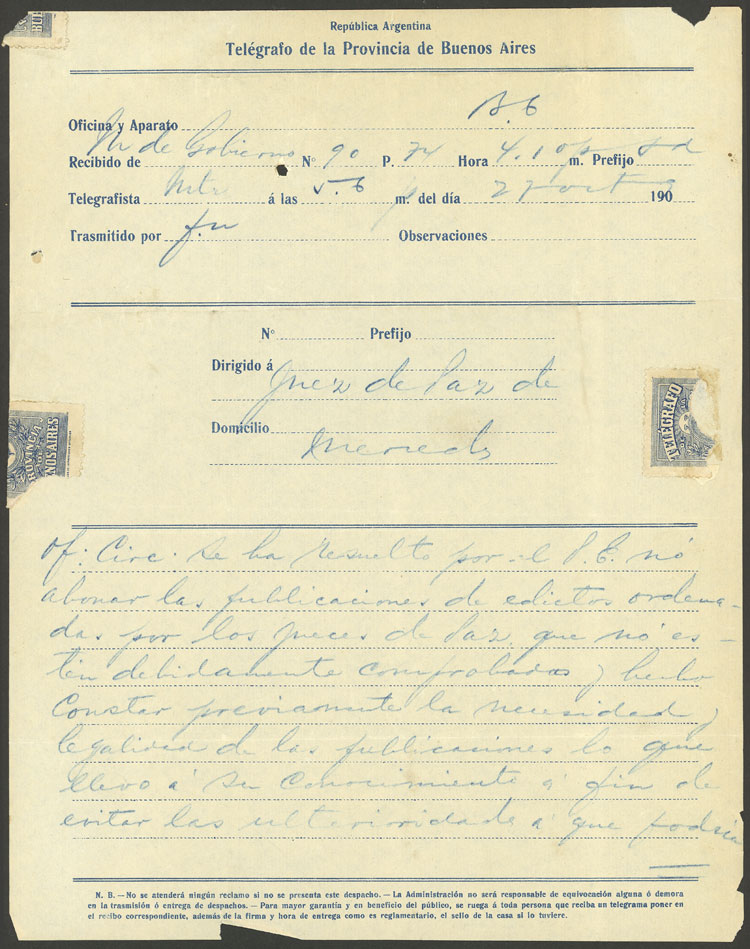 República Argentina
Telégrafo de la Provincia de Buenos Aires
Oficina y Aparato B. 6
Recibido de M de Gobierno Nº 90 P. 74 Hora 4.10 p m. Prefijo
Telegrafista á las 5.6 p m. del día 27 oct 190
Trasmitido por Observaciones
Nº Prefijo
Dirigido á Juez de Paz de
Domicilio Mercedes
Of: Circ. Se ha resuelto por el P. E. nó
abonar las publicaciones de edictos ordena-
das por los Jueces de Paz, que nó es-
tén debidamente comprobadas y hecho
Constar previamente la necesidad y
legalidad de las publicaciones lo que
llevo á su Conocimiento á fin de
evitar las ulterioridade á que podria
N. B. — No se atenderá ningún reclamo si no se presenta este despacho. — La Administración no será responsable de equivocación alguna ó demora
en la trasmisión ó entrega de despachos. — Para mayor garantía y en beneficio del público, se ruega á toda persona que reciba un telegrama poner en
el recibo correspondiente, además de la firma y hora de entrega como es reglamentario, el sello de la casa si lo tuviere.
PROVINCIA
NOS AIRES
TELÉGRAFO